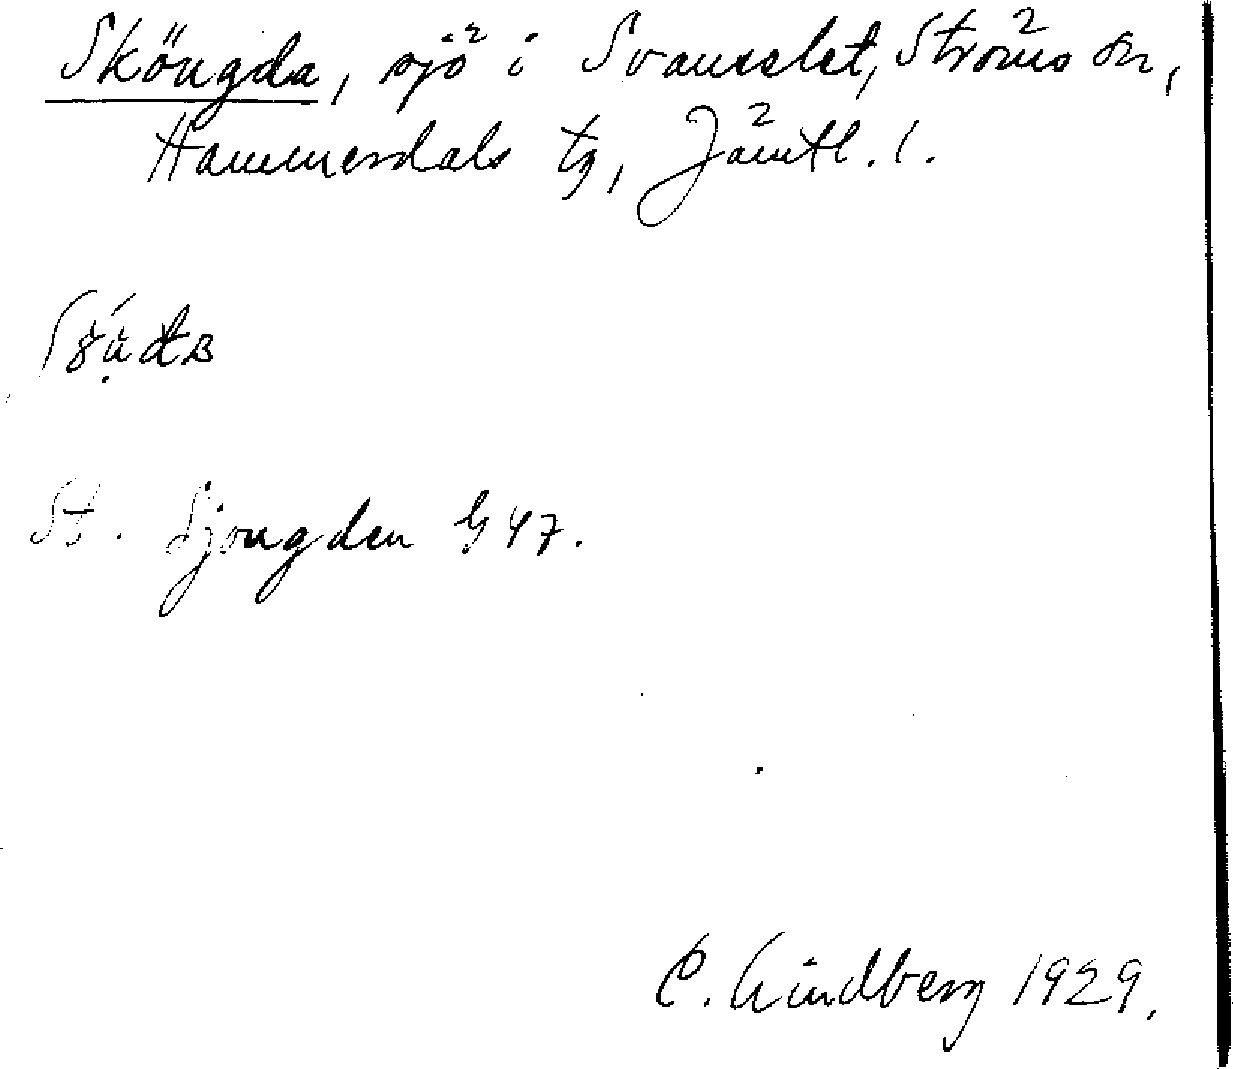 Sköngda, sjö i Svaneselet, Ströms sn,
Hammerdals tg, Jämtl. l.
St. Sjougden G 47.
C. Lindberg 1929.